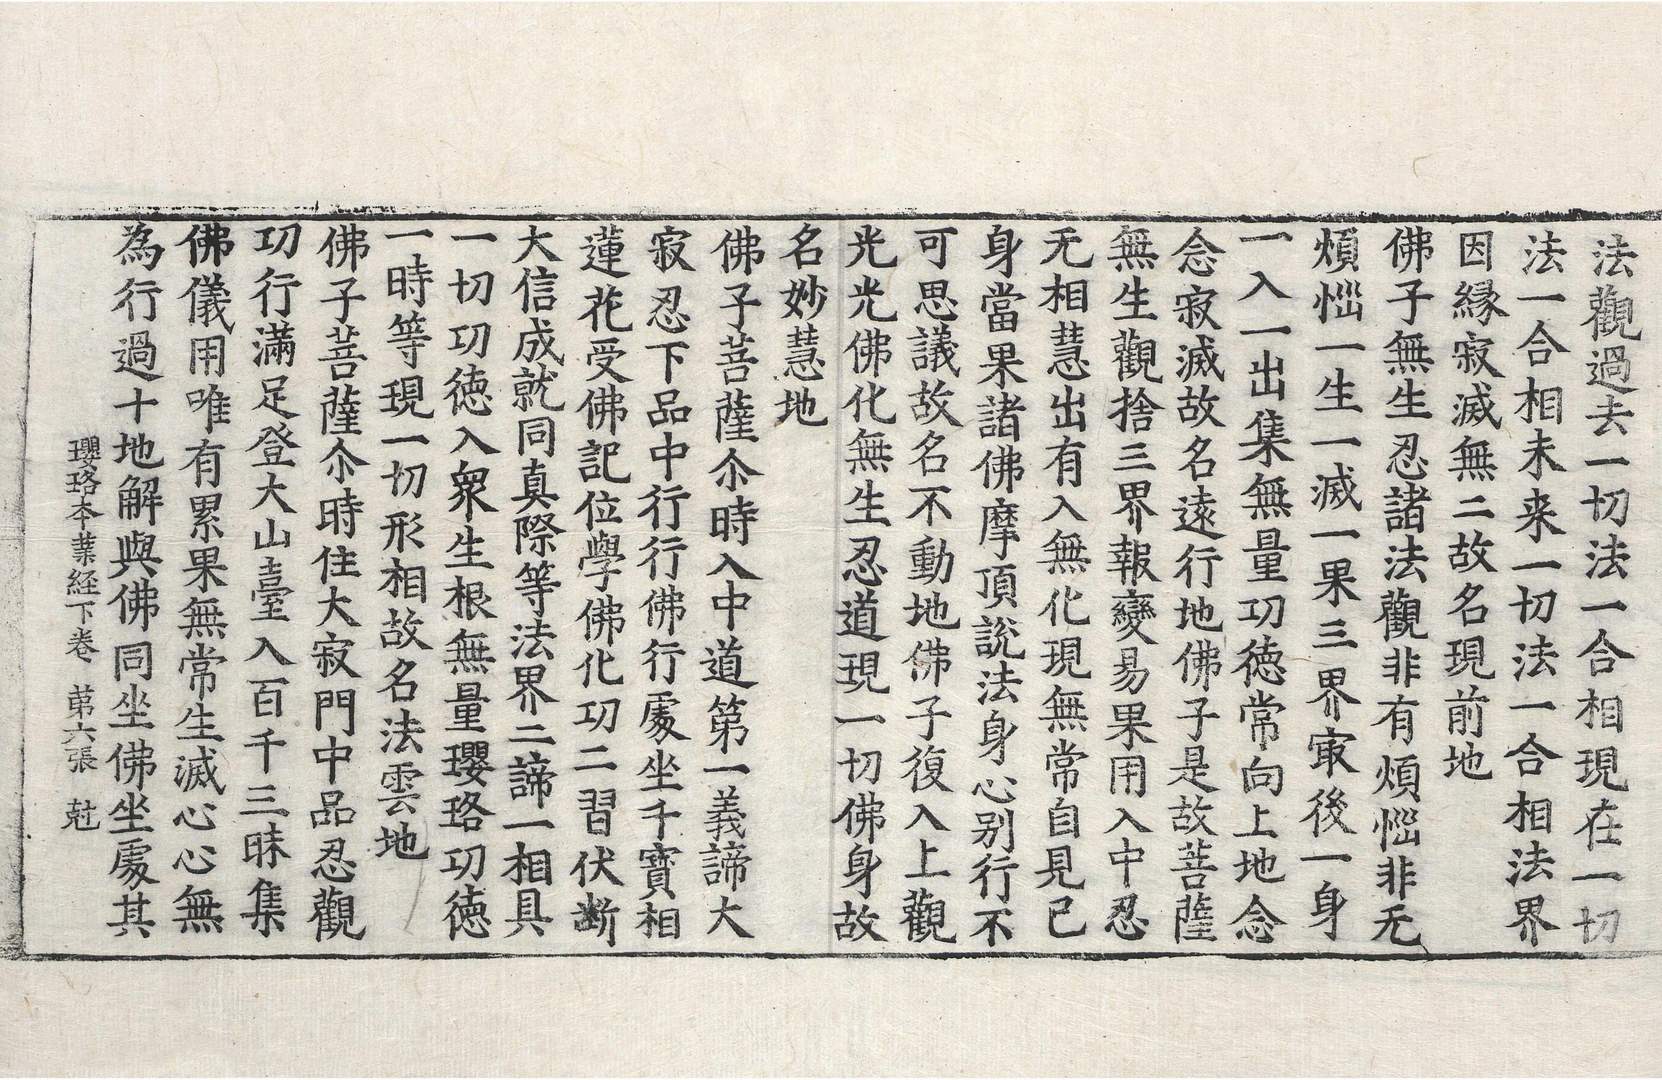 法觀過去一切法一合相現在一切
法一合相未来一切法一合相法界
因縁寂滅無二故名現前地
佛子無生忍諸法觀非有煩惱非无
煩惱一生一滅一果三界㝡後一身
一入一出集無量功德常向上地念
念寂滅故名遠行地佛子是故菩薩
無生觀捨三界報變易果用入中忍
无相慧出有入無化現無常自見己
身當果諸佛摩頂說法身心别行不
可思議故名不動地佛子復入上觀
光光佛化無生忍道現一切佛身故
名妙慧地
佛子菩薩尒時入中道第一義諦大
寂忍下品中行行佛行處坐千寳相
蓮花受佛記位學佛化功二習伏断
大信成就同真際等法界二諦一相具
一切功德入衆生根無量瓔珞功德
一時等現一切形相故名法雲地
佛子菩薩尒時住大寂門中品忍觀
功行滿足登大山臺入百千三昧集
佛儀用唯有累果無常生滅心心無
為行過十地解與佛同坐佛坐處其
瓔珞本業経下卷 苐六張 尅